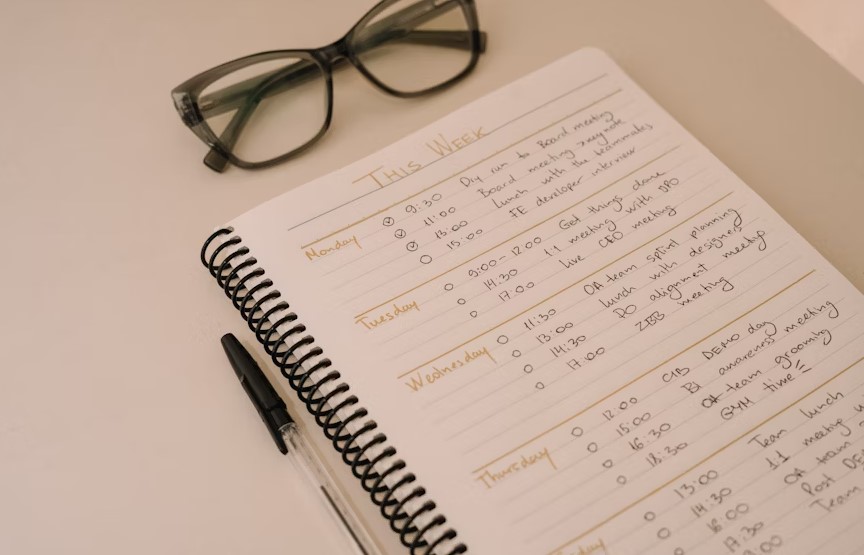 THIS WEEK
Monday
9:30 Dry run to Board meeting
11:00 Board meeting
13:00 Lunch with the teammates
15:00 FE developer interview
Tuesday
9:00-12:00 Get things done
14:30 1:1 meeting with
17:00 live CEO meeting
Wednesday
11:30 OA team sprint planning
13:00 lunch with designers
14:30 PO alignment meetup
17:00 ZBB meeting
Thursday
12:00 DEMO day
15:00 BI awareness meeting
16:30 OA team grooming
18:30 GYM time
13:00 Team lunch
14:30 1:1 meeting
16:00 OA team
17:30 Post
Team